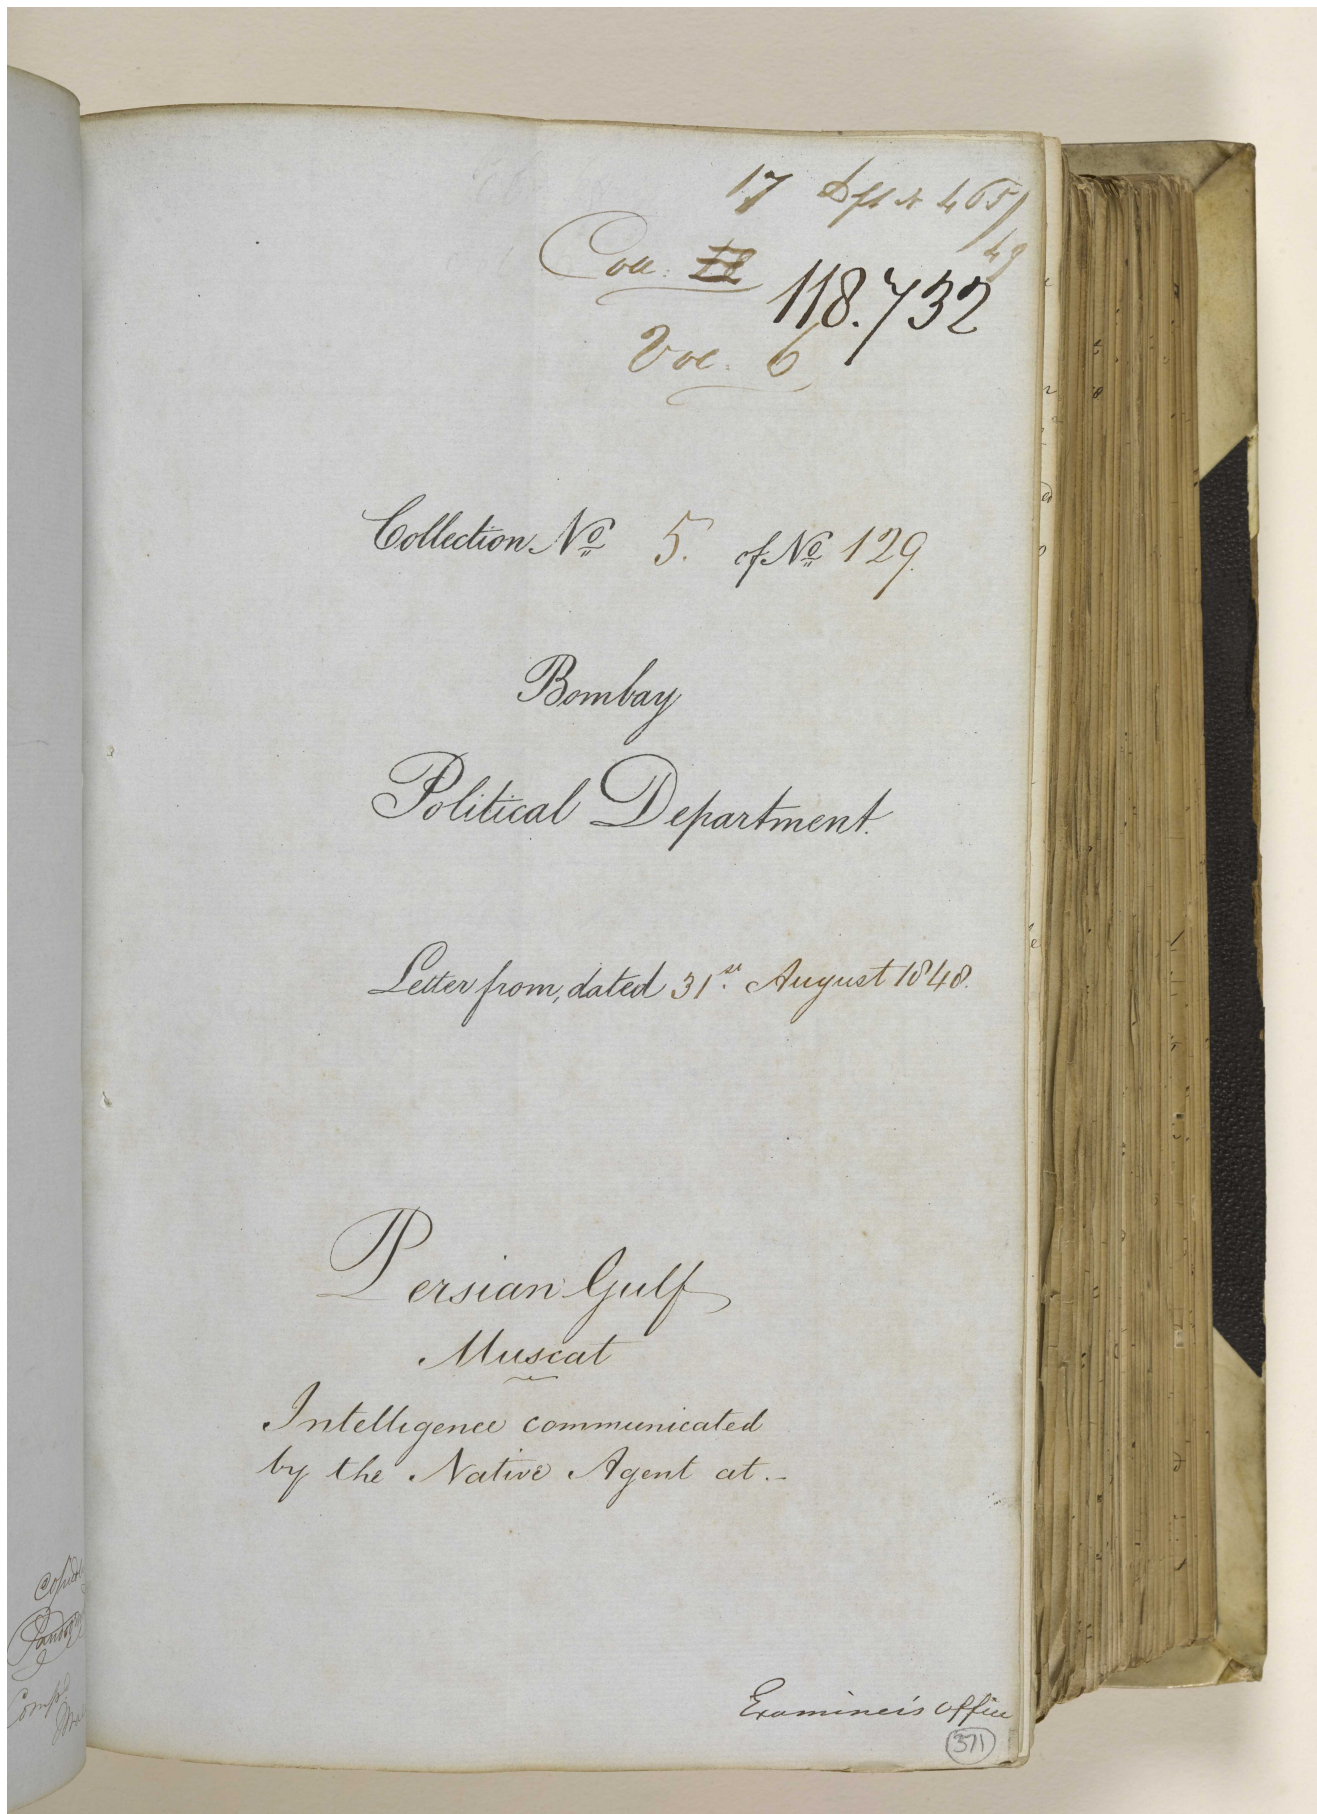 17 Dft No 465/
49
Coll: 
118.732
Vol. 6
Collection No 5. of No 129.
Bombay
Political Department.
Letter from, dated 31st. August 1848.
Persian Gulf
Muscat
Intelligence communicated
by the Native Agent at.-
Examiner's Office
371